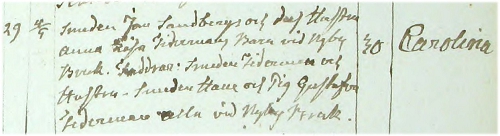 29 4/5 Smeden Jan Sandbergs och dess Hustru
Anna Lisa Tidermans Barn vid Nyby 30 Carolina
Bruk. Faddrar: Smeden Tiderman och
Hustru - Smeden Hane och Pig Gustafva
Tiderman alla vid Nyby Bruk.